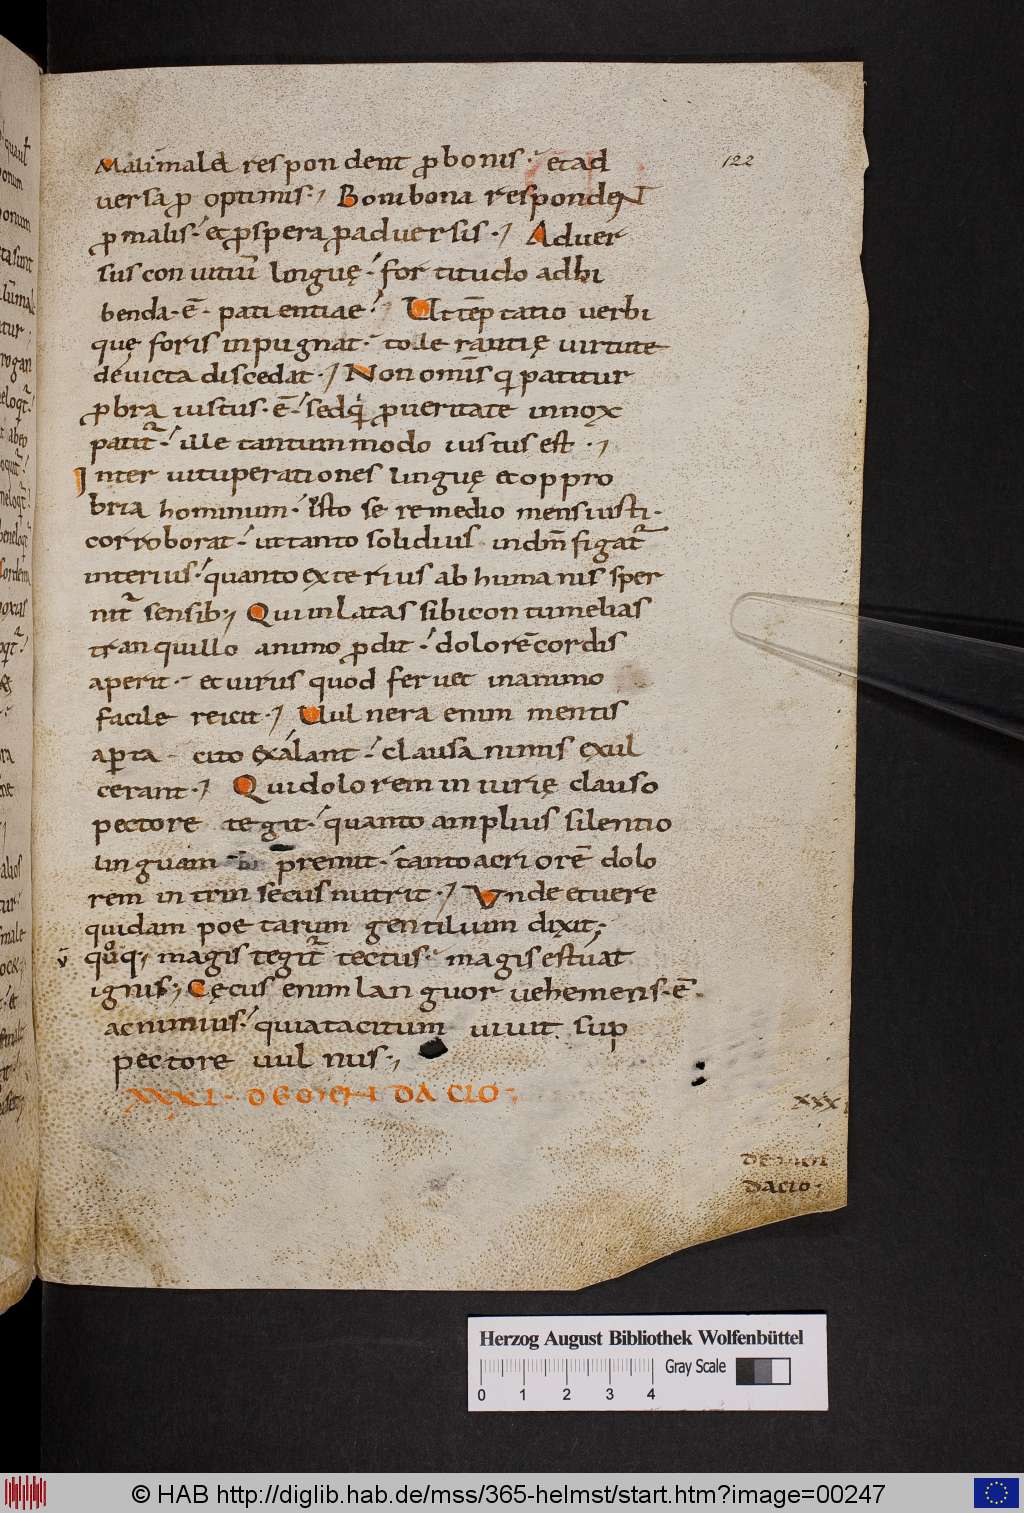 122
Mali mala respondent ꝓ bonis · et ad
versa ꝓ optimis · Boni bona respondeNT
ꝓ malis · et ꝓspera ꝓ adversis · Adver
sus conuitiū linguę · fortitudo adhi
benda · ē · patientiae · Ut tēptatio verbi
quę foris inpugnat · tollerantię uirtute
deuicta discedat · Non omīs q patitur
ꝓbra iustus · ē · sed qͥ ꝓ ueritate innox
patitr̄ · ille tantummodo iustus est ·
Inter uituperationes linguę et oppro
bria hominum · isto se remedio mens iusti ·
corroborat · ut tanto solidius in dm̄ figatr̄
interius · quanto exterius ab humanis sper
nitr̄ sensib; Qui inlatas sibi contumelias
tranquillo animo ꝓdit · dolorē cordis
aperit · et uirus quod feruet in animo
facile reicit · Uulnera enim mentis
aꝑta cito exalant · clausa nimis exul
cerant · Qui dolorem iniurię clauso
pectore tegit · quanto amplius silentio
linguam premit · tanto acriorē dolo
rem intrinsecus nutrit · Unde et uere
quidam poetarum gentilium dixit;
v̄ quoq; magis tegitr̄ tectus · magis estuat
ignis; Cęcus enim languor uehemens · ē ·
ac nimius · quia tacitum uiuit sup
pectore uulnus;
XXXI · DE MENDACIO ·
XXXI
DE MEN
DACIO ·
Herzog August Bibliothek Wolfenbüttel
Gray Scale
0 1 2 3 4
© HAB http://diglib.hab.de/mss/365-helmst/start.htm?image=00247